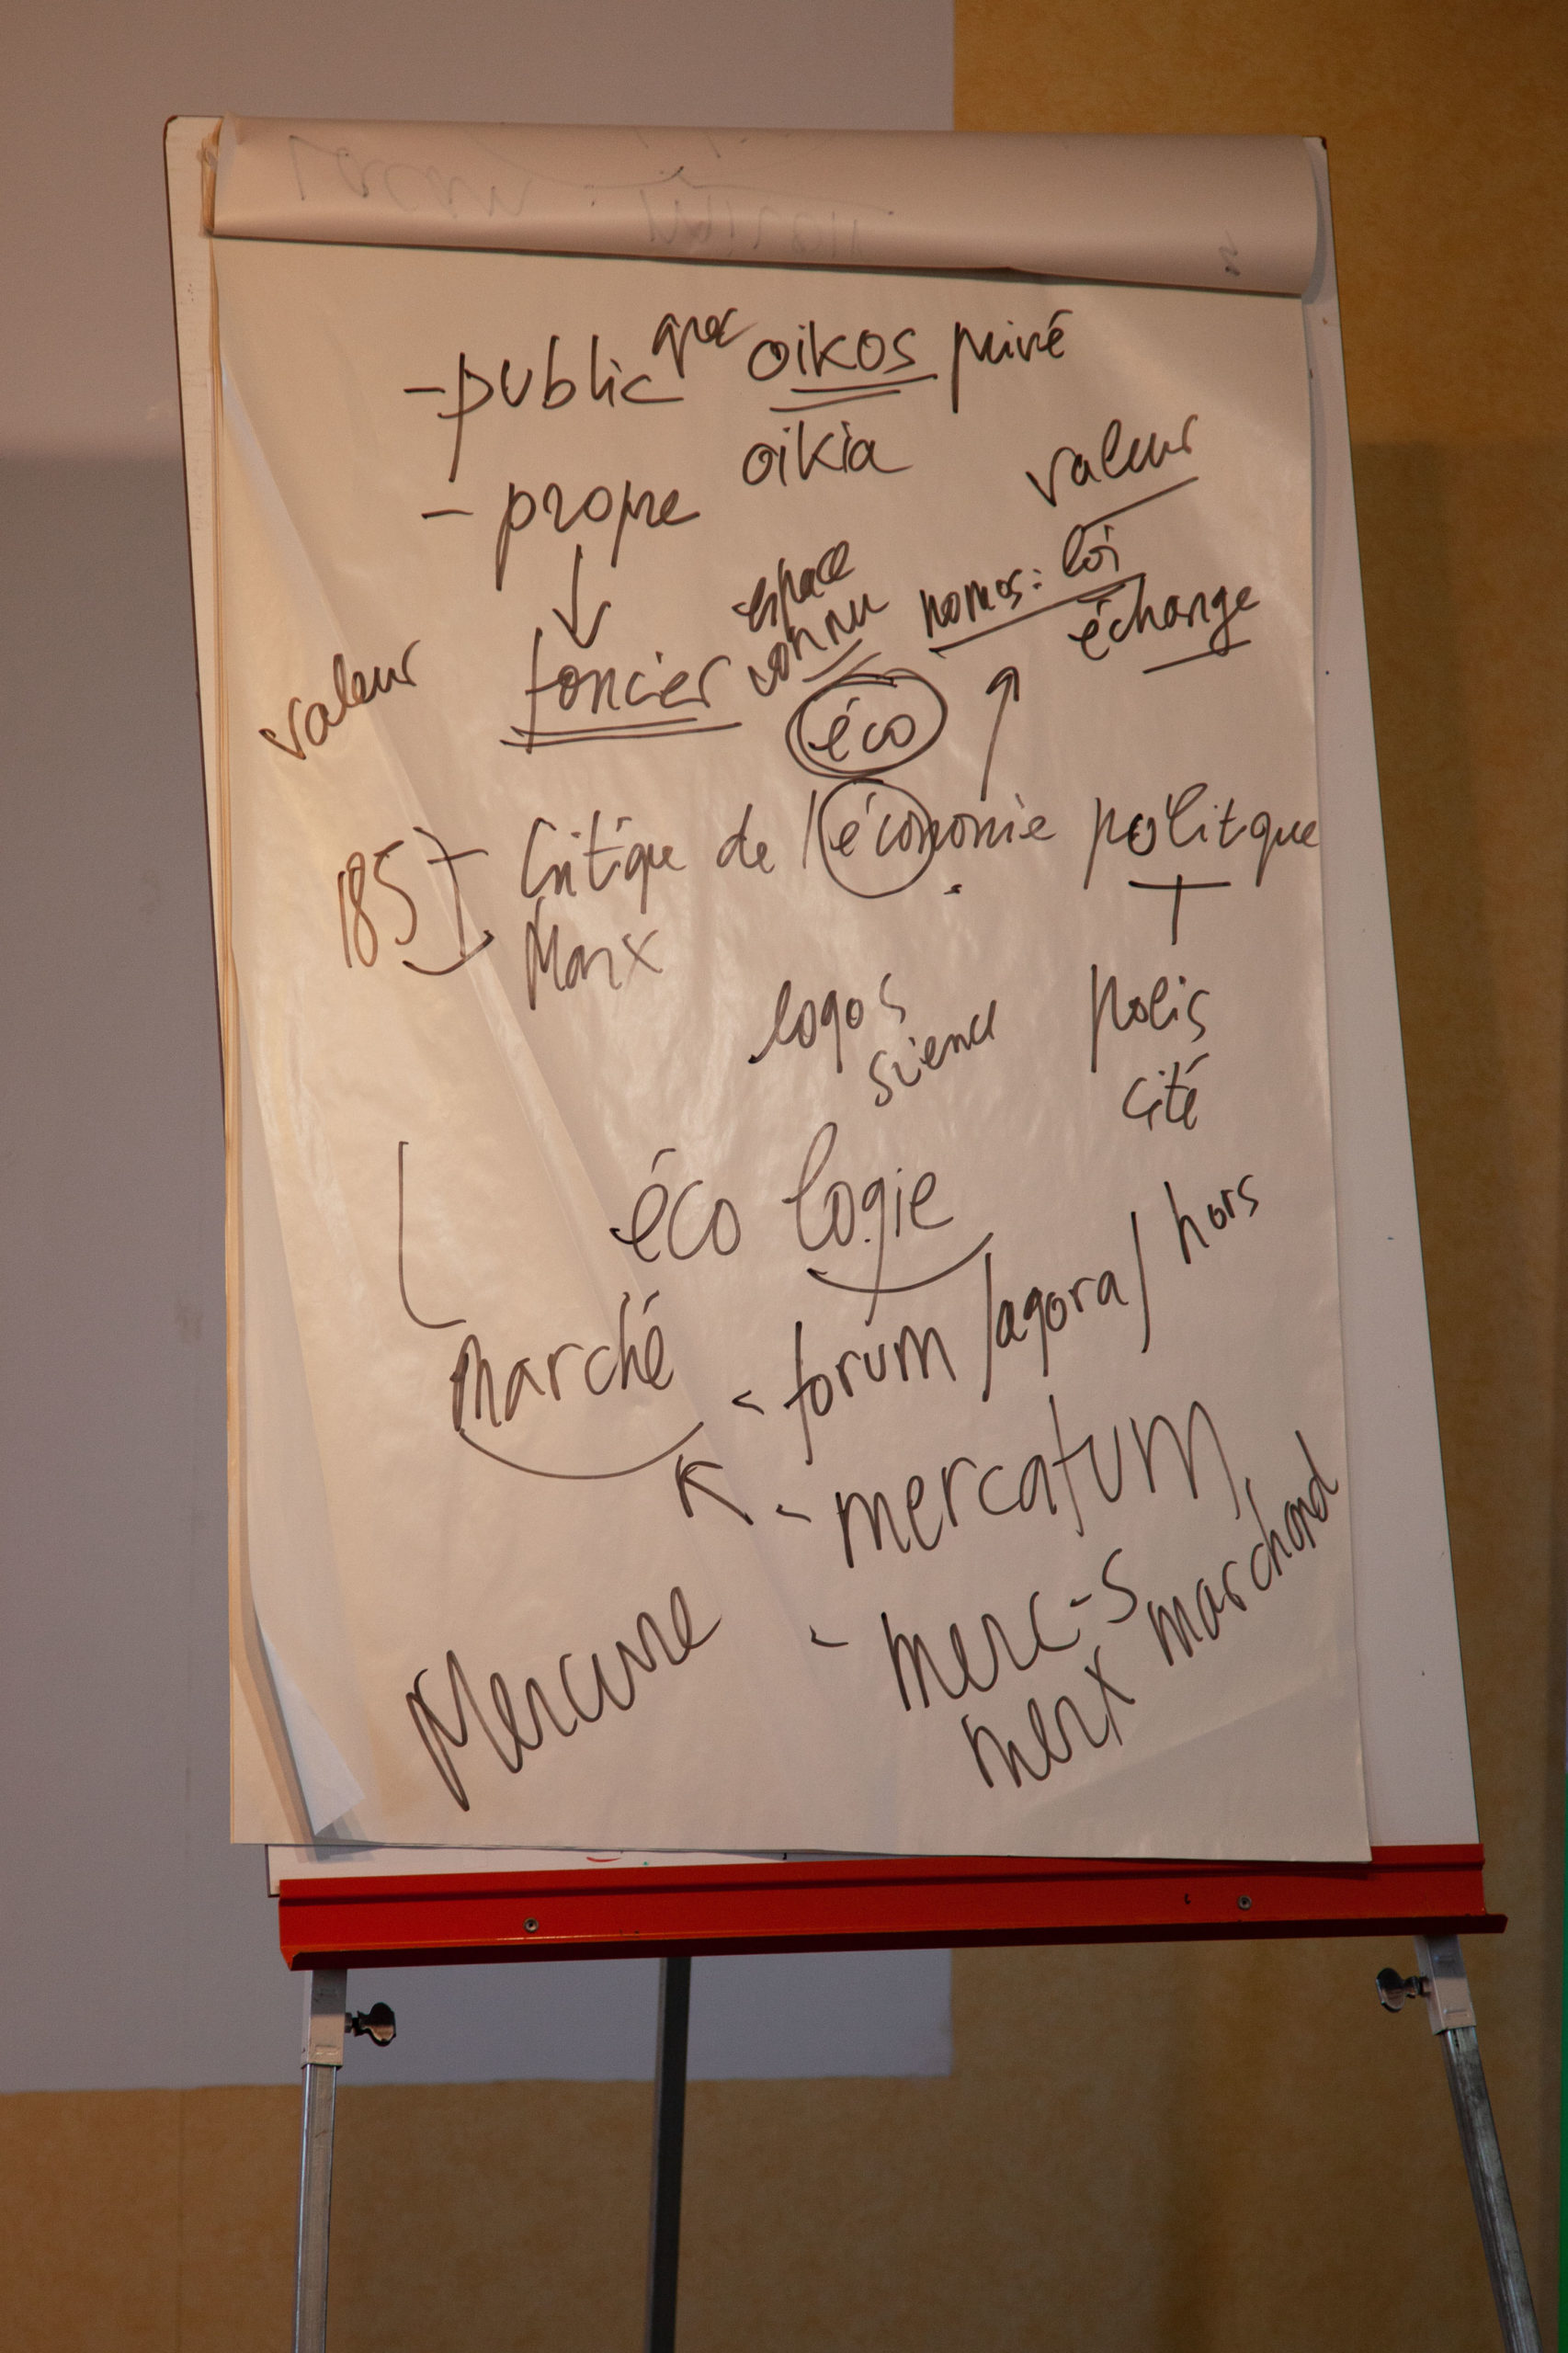 - public grec oikos privé
oikia
- propre
valeur
espace
connu
nomos: loi
échange
valeur
foncier
éco
1857 Critique de l'économie politque
Marx
logos
science
polis
cité
éco logie
marché - forum /agora/ hors
- mercatum
- merc-s marchand
merx
Mercure